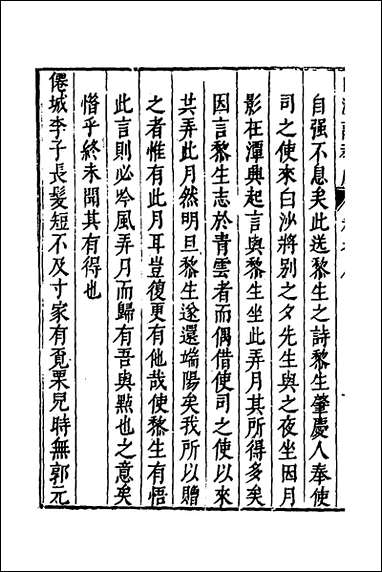 自强不息矣此送黎生之詩黎生肇慶人奉使
司之使來白沙將别之夕先生與之夜坐因月
影在潭興起言與黎生坐此弄月其所得多矣
因言黎生志於青雲者而偶借使司之使以來
共弄此月然明旦黎生遂還端陽矣我所以贈
之者惟有此月耳豈復更有他哉使黎生有悟
此言則必吟風弄月而歸有吾與點也之意矣
惜乎終未聞其有得也
僊城李子長髮短不及寸家有覔栗兒時無郭元